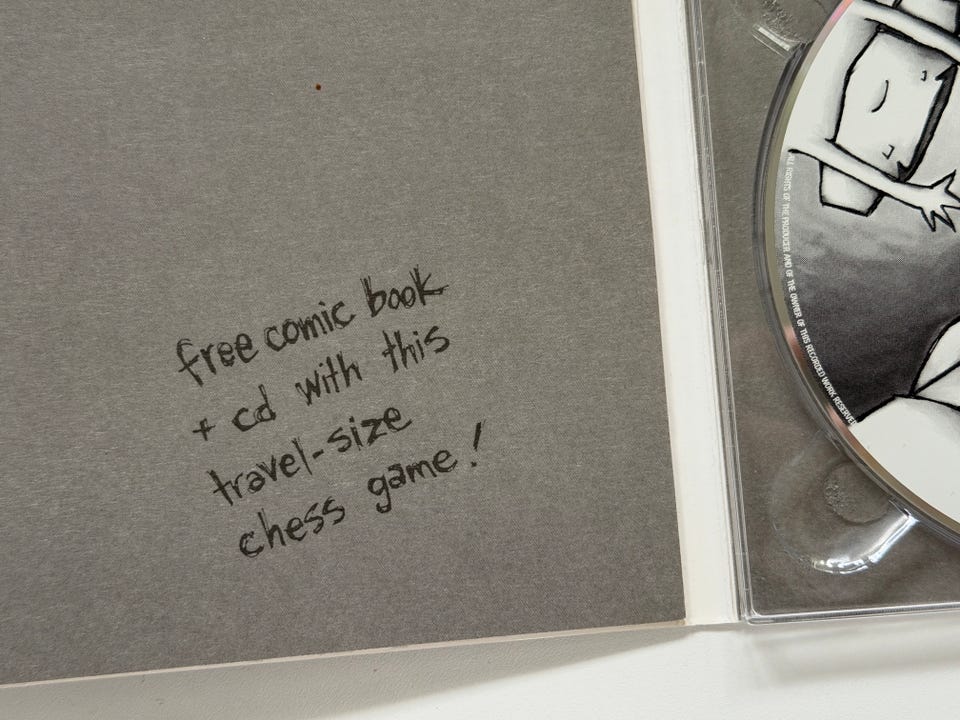 free comic book
+ cd with this
travel-size
chess game!
ALL RIGHTS OF THE PRODUCER AND OF THE OWNER OF THIS RECORDED WORK RESERVED